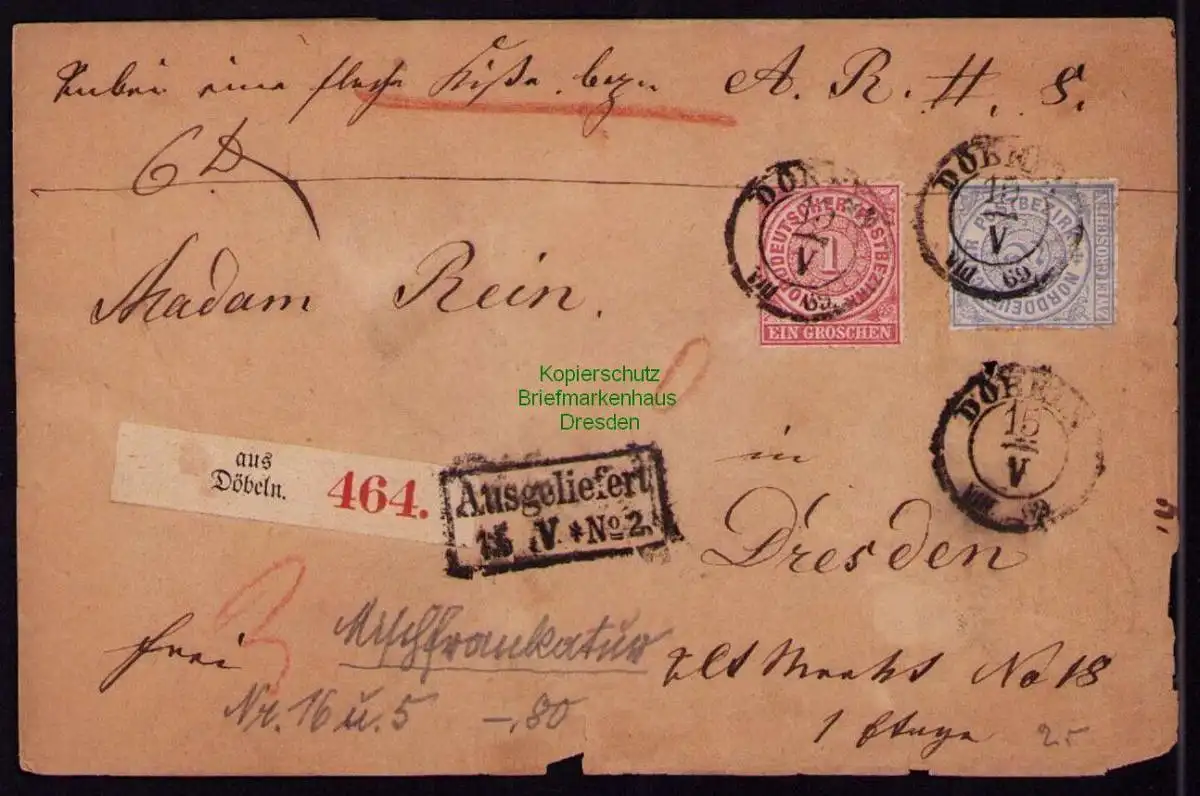 eine flache Kiste. A. R. H. S.
6 D
Madam Rein.
DÖBELN
15
V
69
NORDDEUTSCHER POSTBEZIRK
1
EIN GROSCHEN
DÖBELN
15
V
69
NORDDEUTSCHER POSTBEZIRK
2
GROSCHEN
Kopierschutz
Briefmarkenhaus
Dresden
DÖBELN
15
V
aus
Döbeln.
464.
Ausgeliefert
15 V. * No 2.
in
Dresden
frei
3
Mischfrankatur
Alt Markt No 18
Nr. 16 u. 5 -,80
1 Etage
25